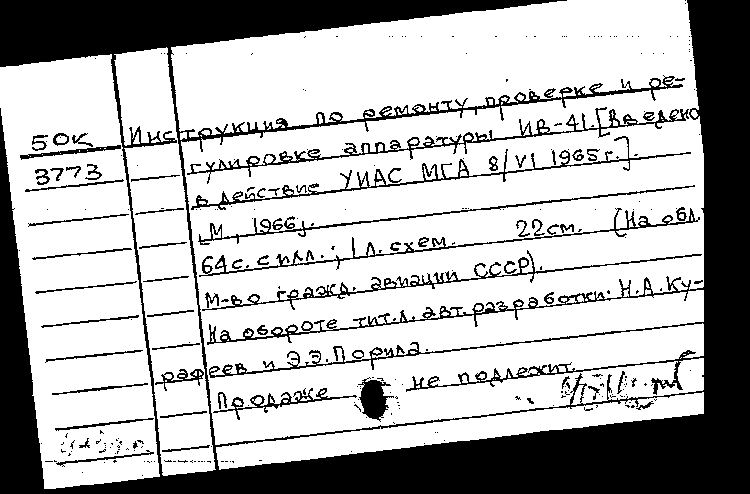 50К Инструкция по ремонту, проверке и ре-
3773 гулировке аппаратуры ИВ-41. [Введено
в действие УИАС МГА 8/VI 1965 г.].
[М., 1966].
64 с. с илл.; 1 л. схем. 22 см. (На обл.
М-во гражд. авиации СССР).
На обороте тит. л. авт. разработки: Н.А. Ку-
рафеев и Э.Э. Порила.
Продаже не подлежит.